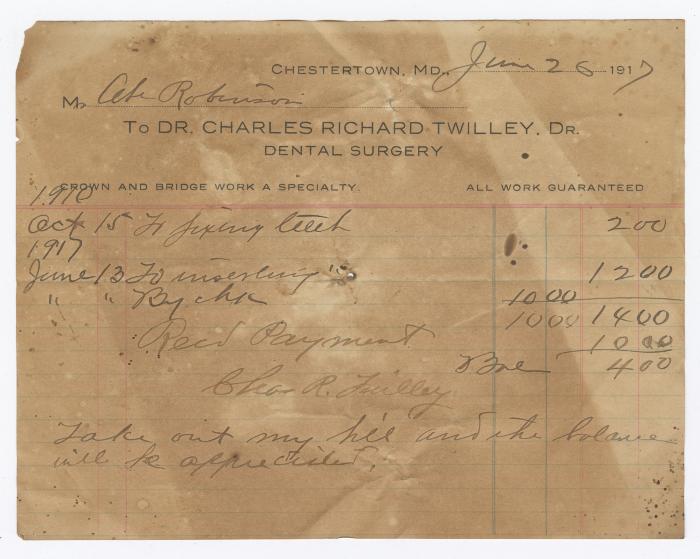 CHESTERTOWN, MD., June 26 1917
M Abe Robinson
TO DR. CHARLES RICHARD TWILLEY, DR.
DENTAL SURGERY
CROWN AND BRIDGE WORK A SPECIALTY. ALL WORK GUARANTEED
1916
Oct 15 To fixing teeth 2 00
1917
June 13 To inserting " 12 00
" " By chk 10 00
10 00 14 00
Recd Payment 10 00
Bal 4 00
Chas R. Twilley
Take out my bill and the balance
will be appreciated.